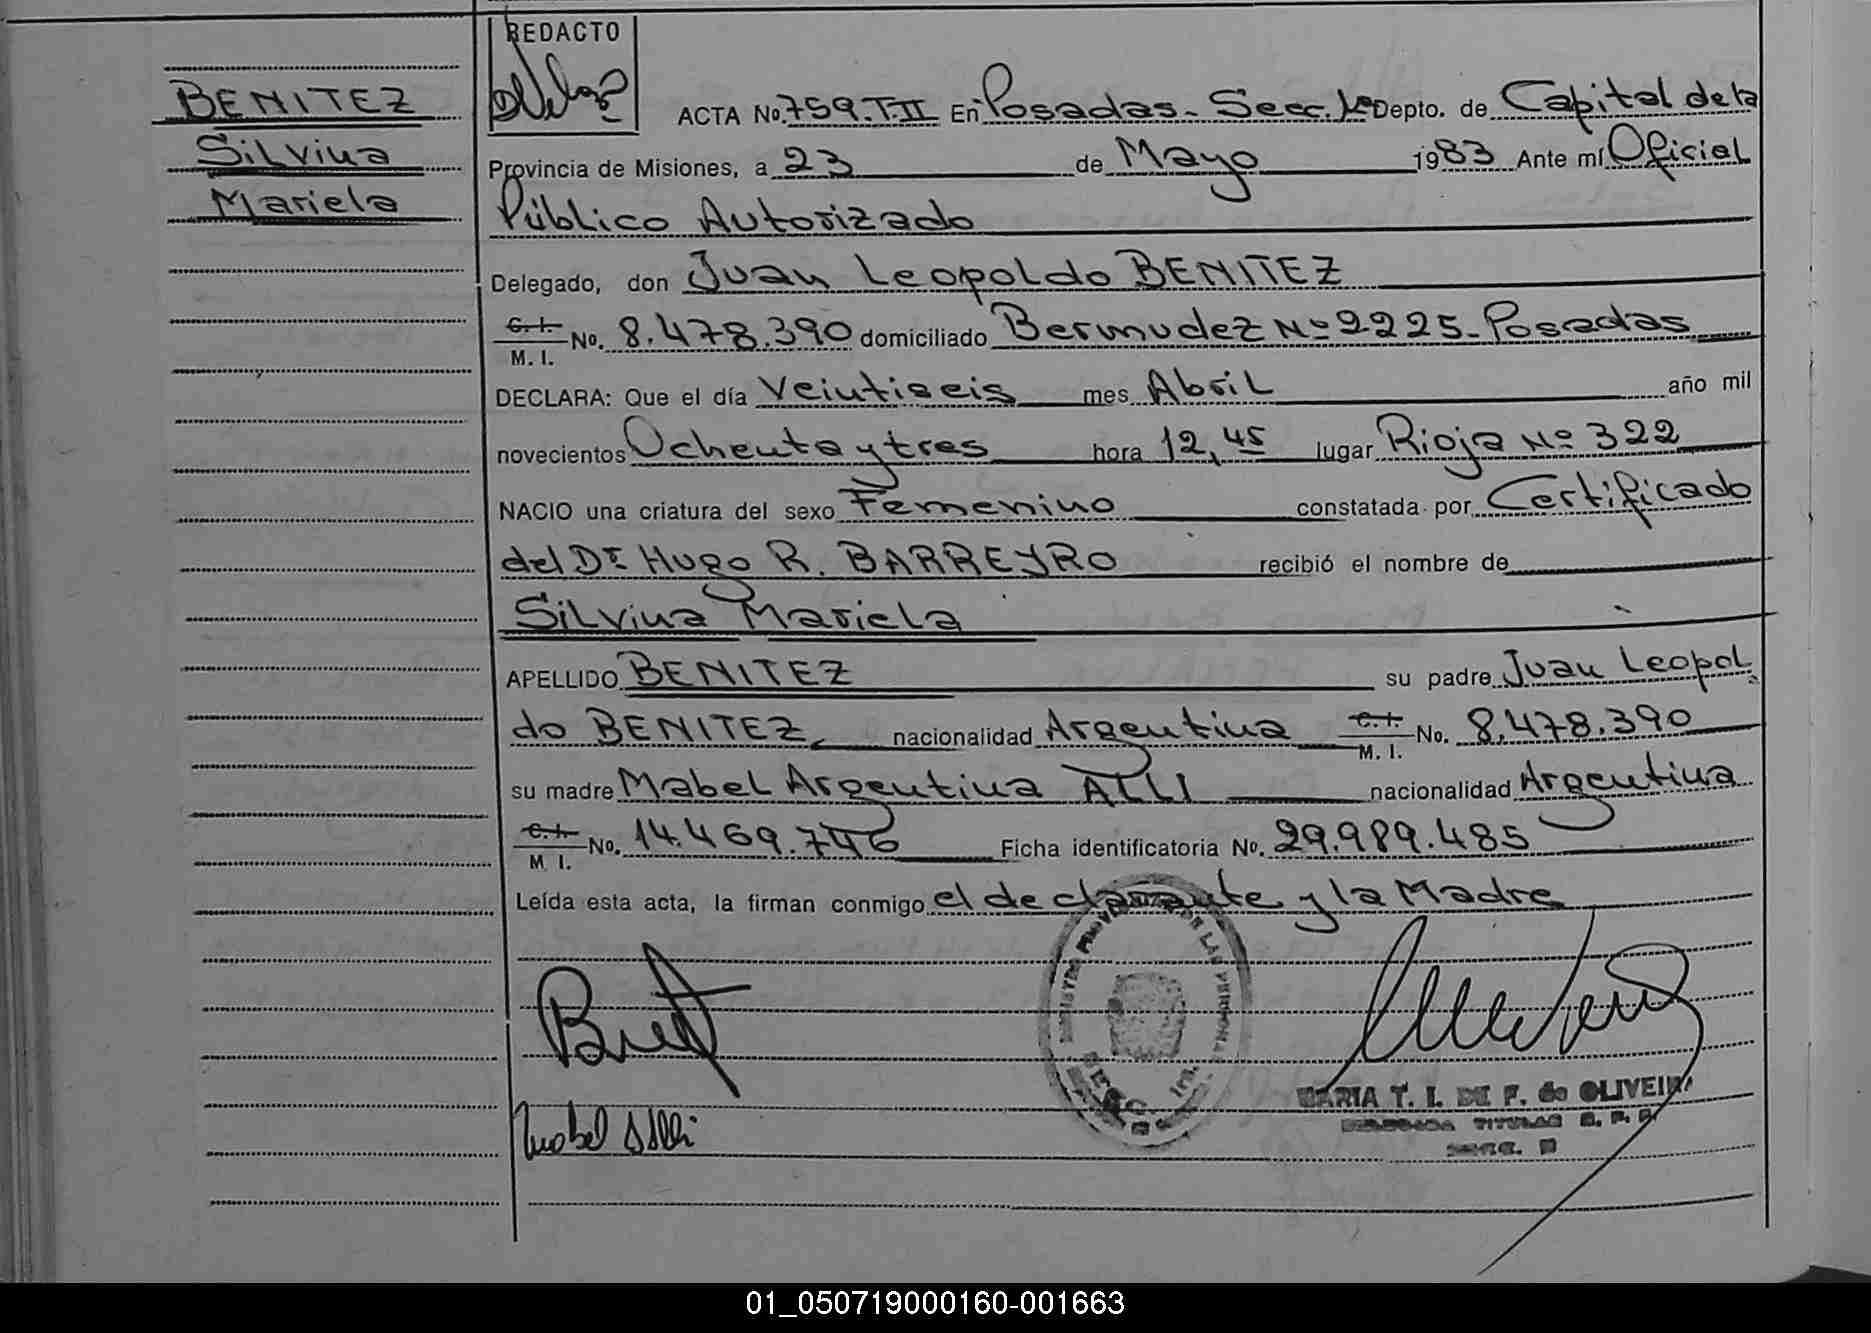 REDACTO
BENITEZ
Silvina
Mariela
ACTA No. 759.T.II En Posadas. Secc. 1ª Depto. de Capital de la
Provincia de Misiones, a 23 de Mayo 1983 Ante mí Oficial
Público Autorizado
Delegado, don Juan Leopoldo BENITEZ
C. I. M. I. No. 8.478.390 domiciliado Bermudez Nº 2225. Posadas
DECLARA: Que el día Veintiseis mes Abril año mil
novecientos Ochenta y tres hora 12,45 lugar Rioja Nº 322
NACIO una criatura del sexo Femenino constatada por Certificado
del Dr Hugo R. BARREYRO recibió el nombre de
Silvina Mariela
APELLIDO BENITEZ su padre Juan Leopol
do BENITEZ, nacionalidad Argentina C. I. M. I. No. 8.478.390
su madre Mabel Argentina ALLI nacionalidad Argentina
C. I. M. I. No. 14.469.746 Ficha identificatoria No. 29.989.485
Leída esta acta, la firman conmigo el declarante y la Madre
Mabel Alli
MARIA T. I. DE F. de OLIVEIRA
TITULAR
01_050719000160-001663